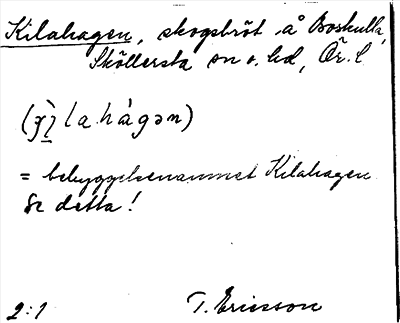 Kilahagen, skogsbröt å Boskulla,
Sköllersta sn o. hd, Ör. l
la hágən)
= bebyggelsenamnet Kilahagen
Se detta!
2:1 T. Ericsson